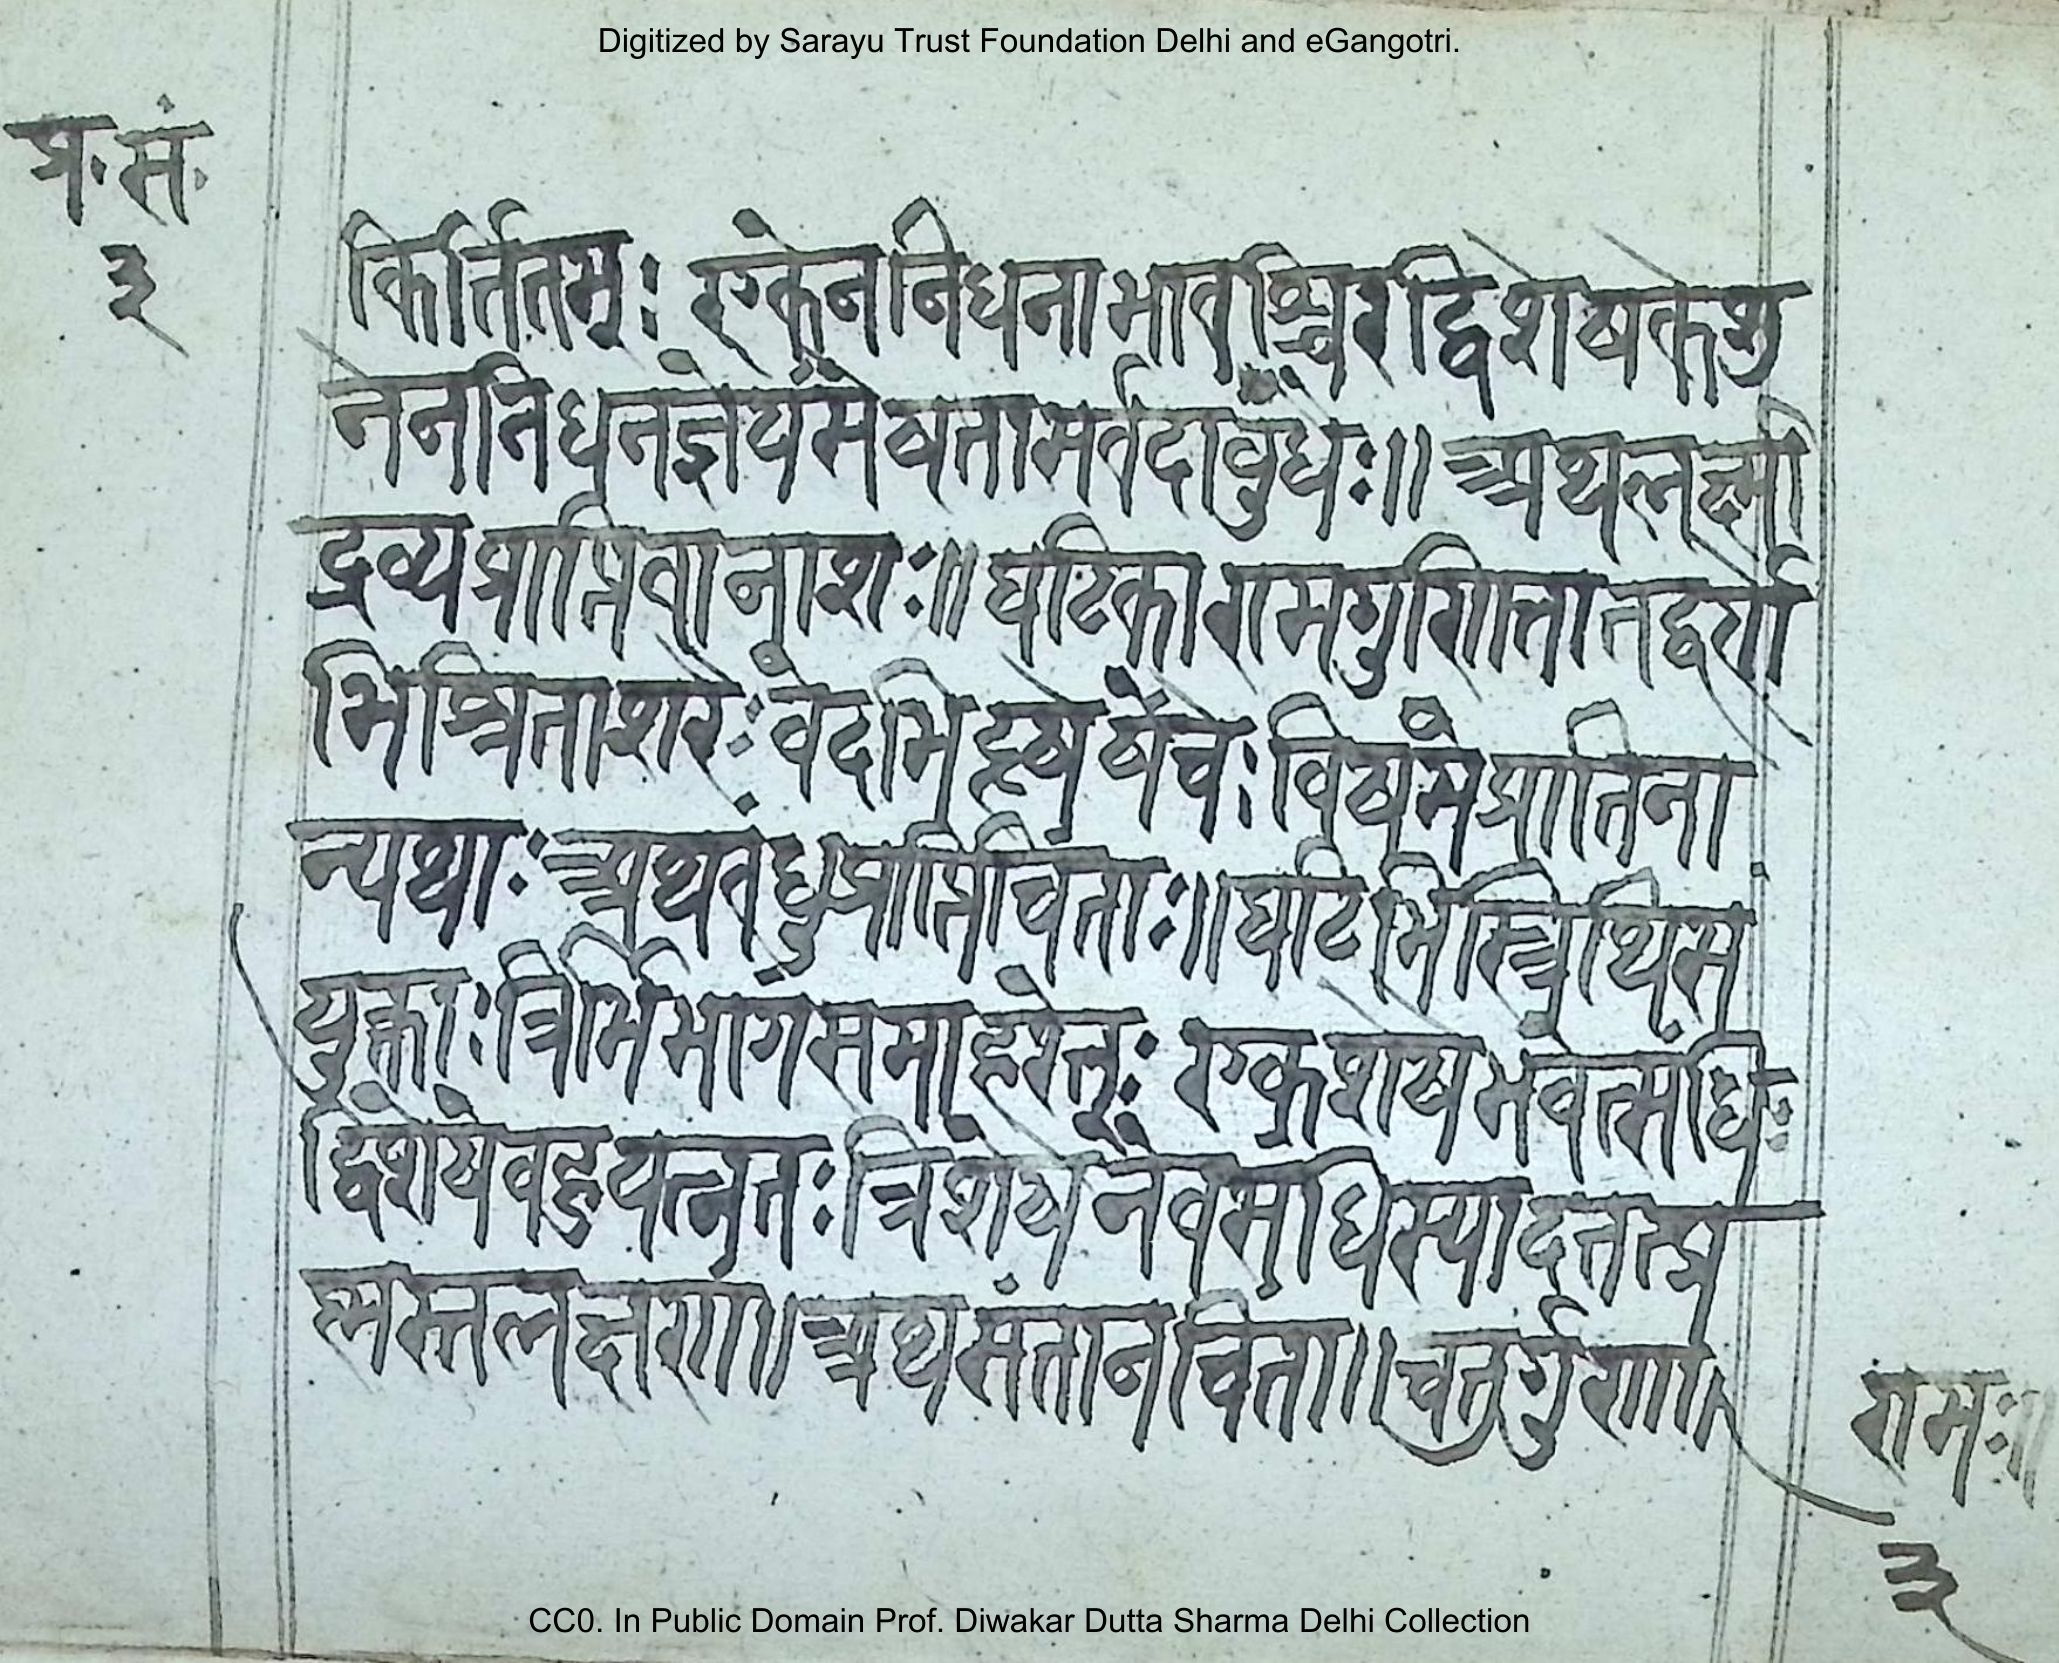 Digitized by Sarayu Trust Foundation Delhi and eGangotri.
प्र.सं.
३
किर्त्तितम्ः एकेन निधनाभाव श्चिर द्विशेषके शु
नेन निधन ज्ञेयं मेषता सर्वदा वुधेः॥ अथ लक्ष्मी
द्रव्य प्राप्ति वा नाशः॥ घटिका राम गुणिता तद्वर्णा
मिश्रिता शरेः वेदभि च विषमं प्राति ना
न्यथाः अथ वंधु प्राप्ति चिंताः॥ घटिभि थि सं
युक्ताः त्रिर्भि भागं समाहरेत्ः एक शेष भवेत्संधिः
द्विशेषे वहु यत्नतः त्रिशेषे नैव संधि स्याद
लक्षणं॥ अथ संतान चिंता॥ चतुर्गुणा
रामः॥
३
CC0. In Public Domain Prof. Diwakar Dutta Sharma Delhi Collection